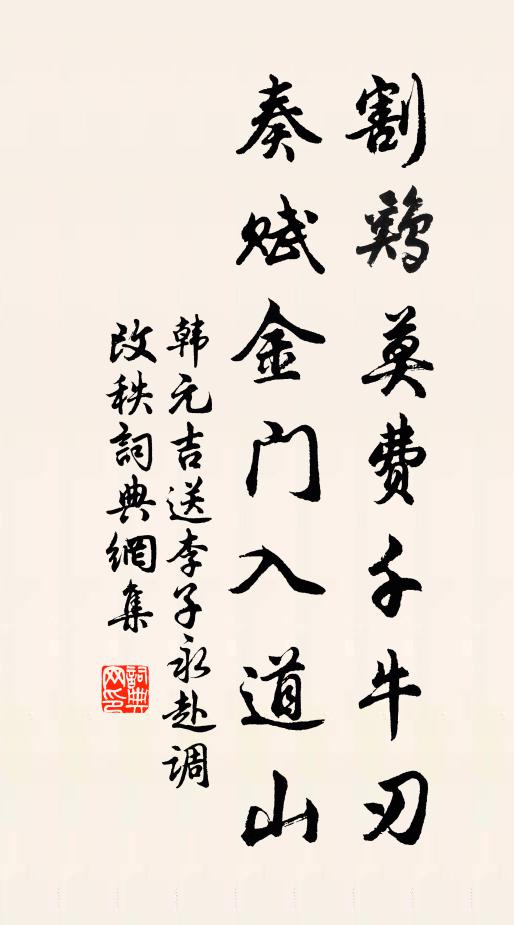 割鷄莫费千牛刃
奏赋金门入道山
韩元吉送李子永赴调
改秩詞典網集
詞典
网印